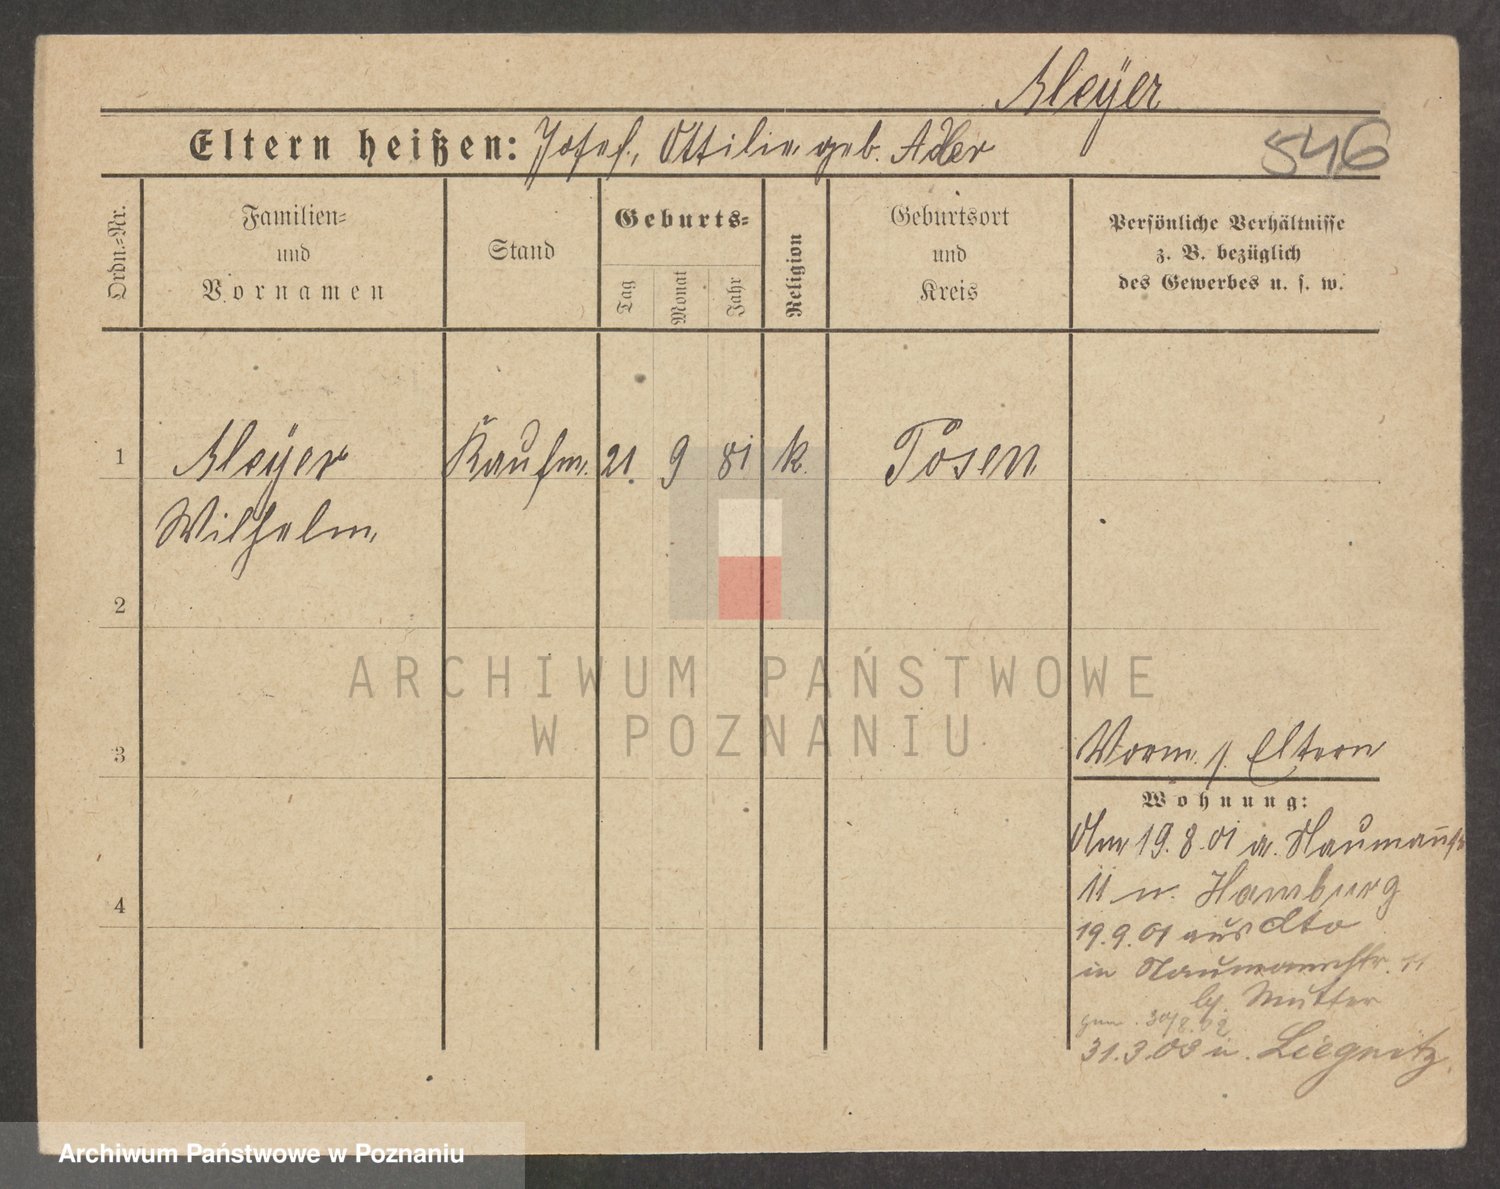 Meÿer
Eltern heißen: Josef, Ottilie geb. Adler
546
Ordn.-Nr.
Familien-
und
Vornamen
Stand
Geburts-
Tag
Monat
Jahr
Religion
Geburtsort
und
Kreis
Persönliche Verhältnisse
z. B. bezüglich
des Gewerbes u. s. w.
1 Meÿer Kaufm. 21. 9 81 k. Posen
Wilhelm
2
ARCHIWUM PAŃSTWOWE
W POZNANIU
3
Vorm. s. Eltern
Wohnung:
Am 19.8.01 a. Naumannstr
11 n. Hamburg
4
19.9.01 aus dto
in Naumannstr. 11
bj. Mutter
gem. 30/8.02
31.3.03 n. Liegnitz
Archiwum Państwowe w Poznaniu